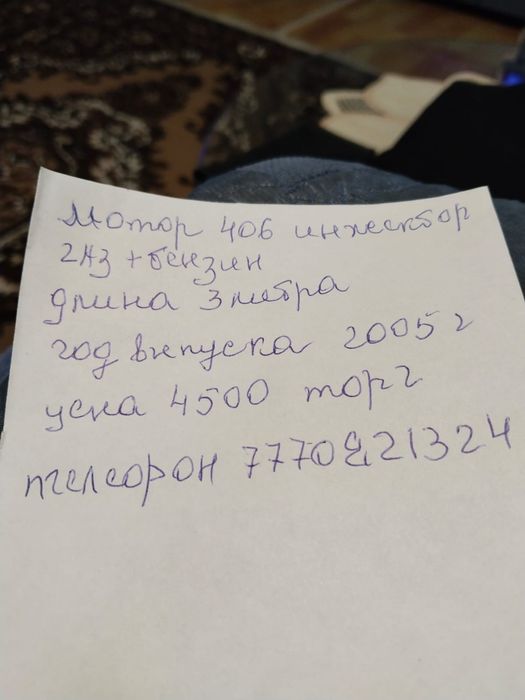 Мотор 406 инжектор
газ + бензин
длина 3 метра
год выпуска 2005 г
цена 4500 торг
телефон 7770221324